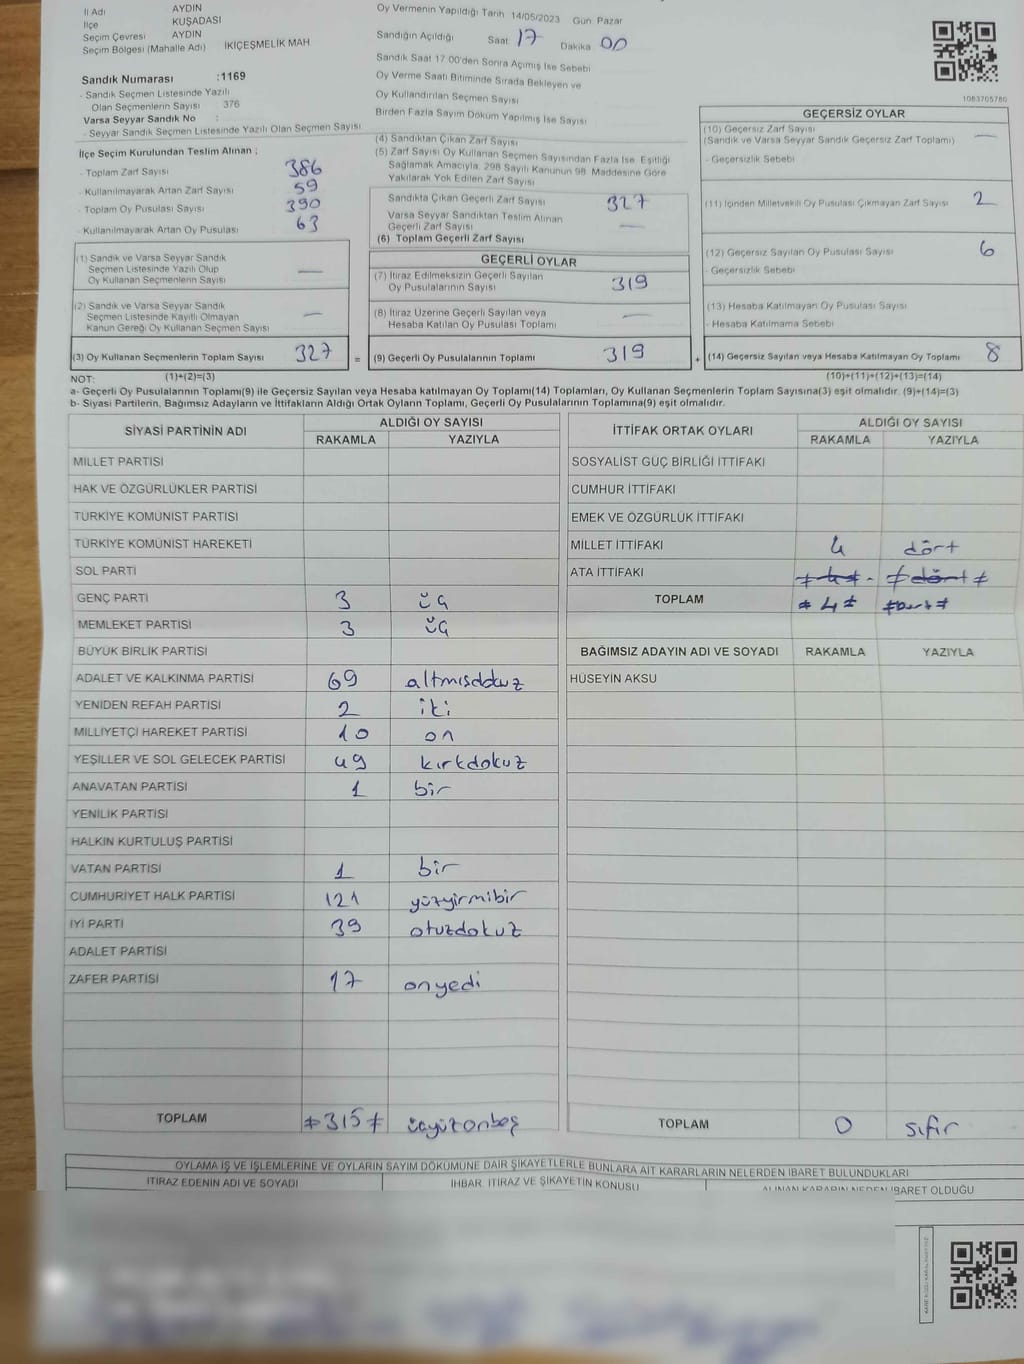 İl Adı AYDIN
İlçe KUŞADASI
Seçim Çevresi AYDIN
Seçim Bölgesi (Mahalle Adı) İKİÇEŞMELİK MAH
Sandık Numarası :1169
- Sandık Seçmen Listesinde Yazılı
Olan Seçmenlerin Sayısı 376
Varsa Seyyar Sandık No :
- Seyyar Sandık Seçmen Listesinde Yazılı Olan Seçmen Sayısı
İlçe Seçim Kurulundan Teslim Alınan ;
- Toplam Zarf Sayısı 386
- Kullanılmayarak Artan Zarf Sayısı 59
- Toplam Oy Pusulası Sayısı 390
- Kullanılmayarak Artan Oy Pusulası 63
(1) Sandık ve Varsa Seyyar Sandık
Seçmen Listesinde Yazılı Olup
Oy Kullanan Seçmenlerin Sayısı —
(2) Sandık ve Varsa Seyyar Sandık
Seçmen Listesinde Kayıtlı Olmayan
Kanun Gereği Oy Kullanan Seçmen Sayısı —
(3) Oy Kullanan Seçmenlerin Toplam Sayısı 327 =
Oy Vermenin Yapıldığı Tarih 14/05/2023 Gün Pazar
Sandığın Açıldığı Saat 17 Dakika 00
Sandık Saat 17 00'den Sonra Açımış İse Sebebi
Oy Verme Saati Bitiminde Sırada Bekleyen ve
Oy Kullandırılan Seçmen Sayısı
Birden Fazla Sayım Döküm Yapılmış İse Sayısı
(4) Sandıktan Çıkan Zarf Sayısı
(5) Zarf Sayısı Oy Kullanan Seçmen Sayısından Fazla İse Eşitliği
Sağlamak Amacıyla, 298 Sayılı Kanunun 98. Maddesine Göre
Yakılarak Yok Edilen Zarf Sayısı
Sandıkta Çıkan Geçerli Zarf Sayısı 327
Varsa Seyyar Sandıktan Teslim Alınan
Geçerli Zarf Sayısı —
(6) Toplam Geçerli Zarf Sayısı
GEÇERLİ OYLAR
(7) İtiraz Edilmeksizin Geçerli Sayılan
Oy Pusulalarının Sayısı 319
(8) İtiraz Üzerine Geçerli Sayılan veya
Hesaba Katılan Oy Pusulası Toplamı —
(9) Geçerli Oy Pusulalarının Toplamı 319 +
1063705760
GEÇERSİZ OYLAR
(10) Geçersiz Zarf Sayısı
(Sandık ve Varsa Seyyar Sandık Geçersiz Zarf Toplamı) —
- Geçersizlik Sebebi
(11) İçinden Milletvekili Oy Pusulası Çıkmayan Zarf Sayısı 2
(12) Geçersiz Sayılan Oy Pusulası Sayısı 6
- Geçersizlik Sebebi
(13) Hesaba Katılmayan Oy Pusulası Sayısı
- Hesaba Katılmama Sebebi
(14) Geçersiz Sayılan veya Hesaba Katılmayan Oy Toplamı 8
NOT: (1)+(2)=(3) (10)+(11)+(12)+(13)=(14)
a- Geçerli Oy Pusulalarının Toplamı(9) ile Geçersiz Sayılan veya Hesaba katılmayan Oy Toplamı(14) Toplamları, Oy Kullanan Seçmenlerin Toplam Sayısına(3) eşit olmalıdır. (9)+(14)=(3)
b- Siyasi Partilerin, Bağımsız Adayların ve İttifakların Aldığı Ortak Oyların Toplamı, Geçerli Oy Pusulalarının Toplamına(9) eşit olmalıdır.
SİYASİ PARTİNİN ADI ALDIĞI OY SAYISI
RAKAMLA YAZIYLA
MİLLET PARTİSİ
HAK VE ÖZGÜRLÜKLER PARTİSİ
TÜRKİYE KOMÜNİST PARTİSİ
TÜRKİYE KOMÜNİST HAREKETİ
SOL PARTİ
GENÇ PARTİ 3 üç
MEMLEKET PARTİSİ 3 üç
BÜYÜK BİRLİK PARTİSİ
ADALET VE KALKINMA PARTİSİ 69 altmışdokuz
YENİDEN REFAH PARTİSİ 2 iki
MİLLİYETÇİ HAREKET PARTİSİ 10 on
YEŞİLLER VE SOL GELECEK PARTİSİ 49 kırkdokuz
ANAVATAN PARTİSİ 1 bir
YENİLİK PARTİSİ
HALKIN KURTULUŞ PARTİSİ
VATAN PARTİSİ 1 bir
CUMHURİYET HALK PARTİSİ 121 yüzyirmibir
İYİ PARTİ 39 otuzdokuz
ADALET PARTİSİ
ZAFER PARTİSİ 17 onyedi
TOPLAM ≠315≠ üçyüzonbeş
İTTİFAK ORTAK OYLARI ALDIĞI OY SAYISI
RAKAMLA YAZIYLA
SOSYALİST GÜÇ BİRLİĞİ İTTİFAKI
CUMHUR İTTİFAKI
EMEK VE ÖZGÜRLÜK İTTİFAKI
MİLLET İTTİFAKI 4 dört
ATA İTTİFAKI ≠4≠ - ≠dört≠
TOPLAM ≠4≠ ≠dört≠
BAĞIMSIZ ADAYIN ADI VE SOYADI RAKAMLA YAZIYLA
HÜSEYİN AKSU
TOPLAM 0 sıfır
OYLAMA İŞ VE İŞLEMLERİNE VE OYLARIN SAYIM DÖKÜMÜNE DAİR ŞİKAYETLERLE BUNLARA AİT KARARLARIN NELERDEN İBARET BULUNDUKLARI
İTİRAZ EDENİN ADI VE SOYADI İHBAR, İTİRAZ VE ŞİKAYETİN KONUSU ALINAN KARARIN NEDEN İBARET OLDUĞU